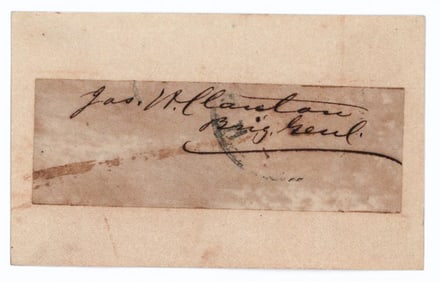 Jas. H. Clanton
Brig. Genl.